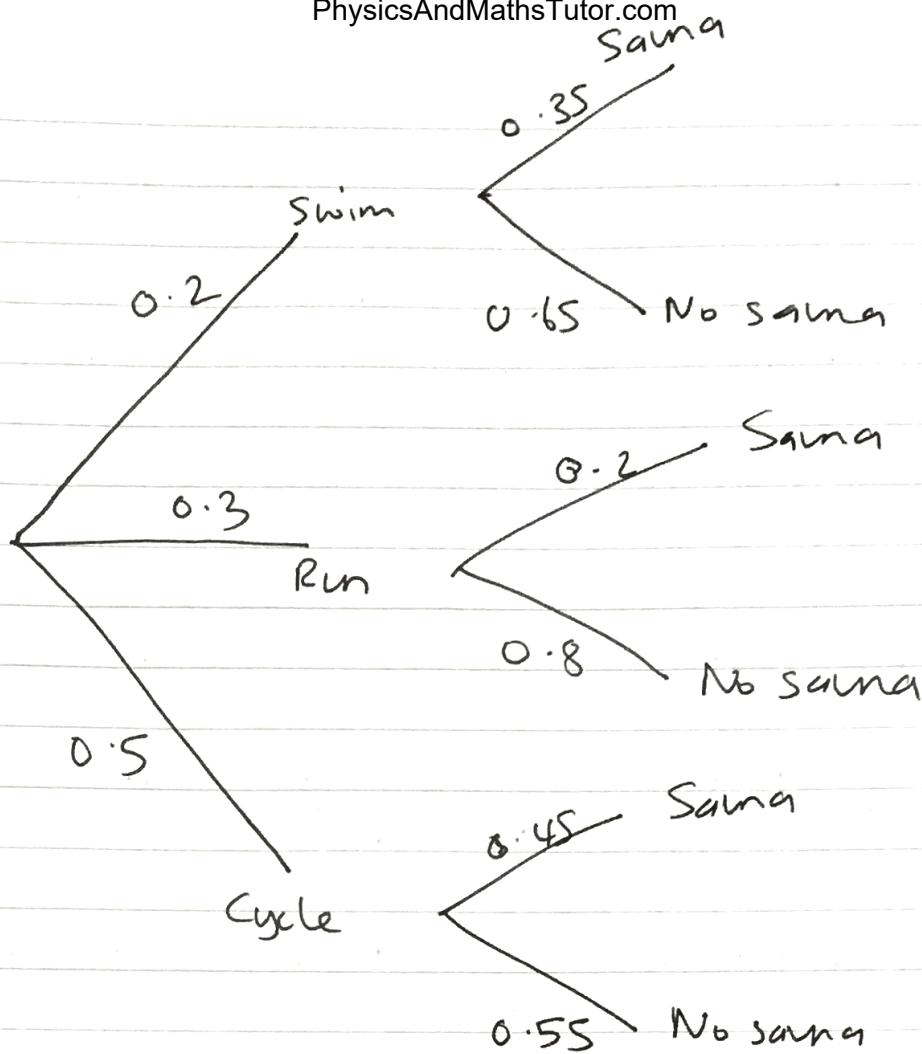 PhysicsAndMathsTutor.com
Sauna
0.35
Swim
0.2
0.65
No sauna
Sauna
0.2
0.3
Run
0.8
No sauna
0.5
Sauna
0.45
Cycle
0.55
No sauna